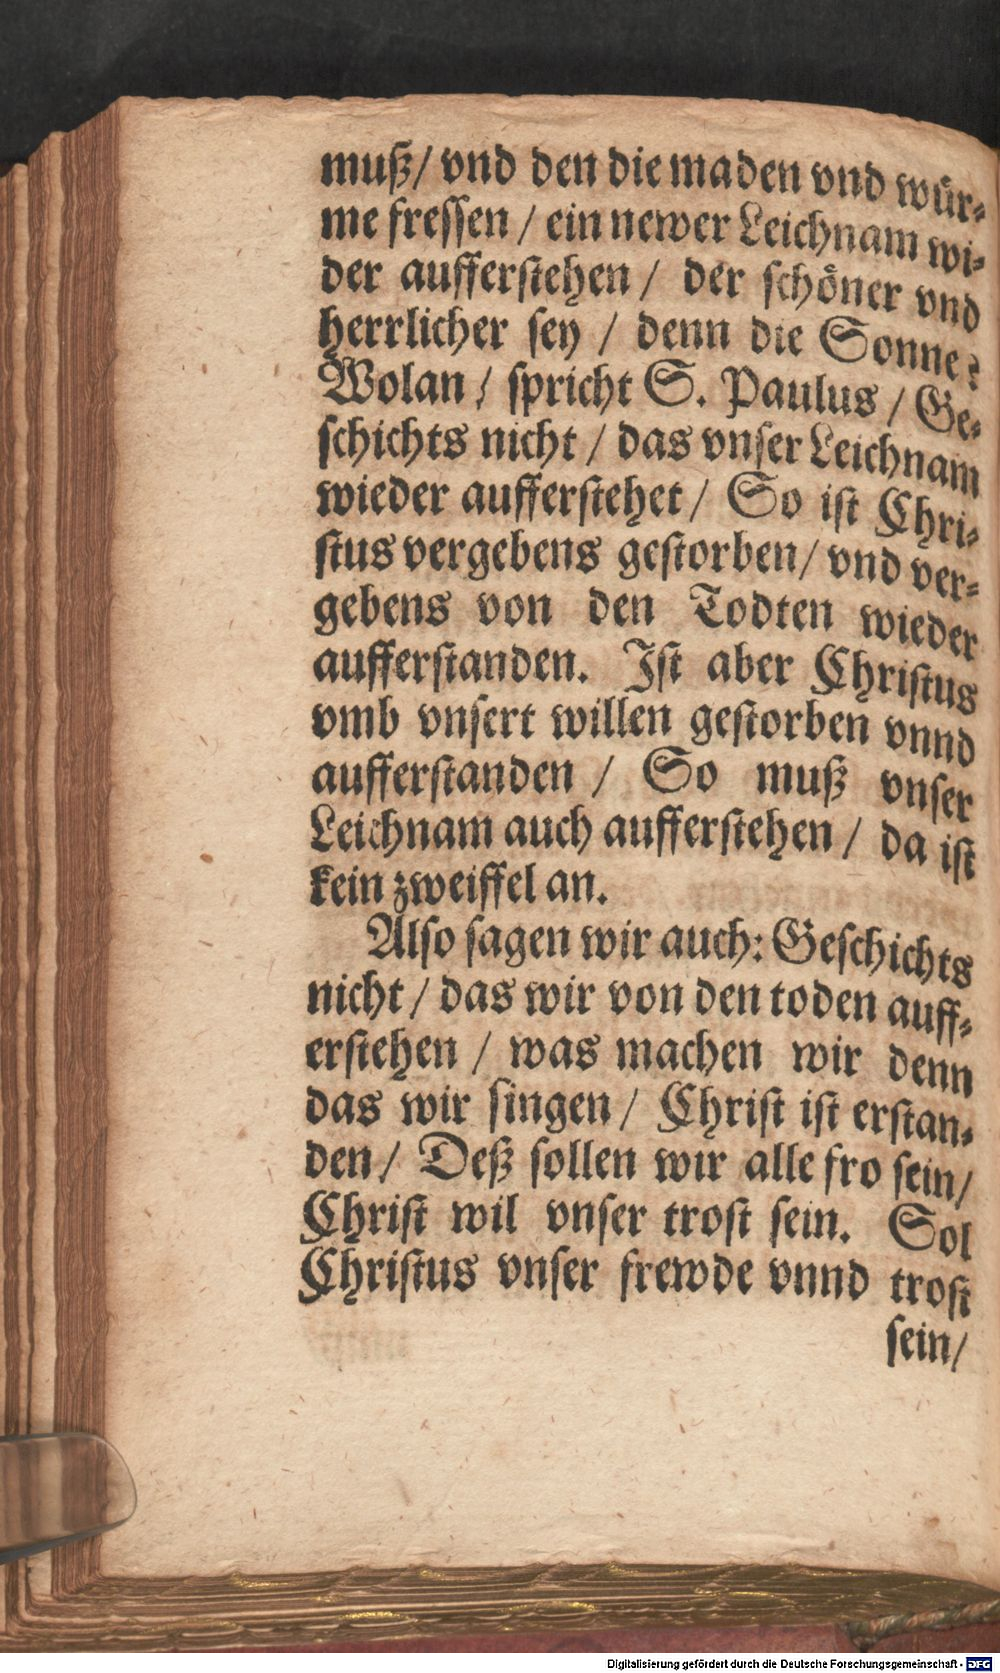 muß/ vnd den die maden vnd wür-
me fressen / ein newer Leichnam wi-
der aufferstehen / der schöner vnd
herrlicher sey / denn die Sonne?
Wolan / spricht S. Paulus / Ge-
schichts nicht / das vnser Leichnam
wieder aufferstehet / So ist Chri-
stus vergebens gestorben/ vnd ver-
gebens von den Todten wieder
aufferstanden. Ist aber Christus
vmb vnsert willen gestorben vnnd
aufferstanden / So muß vnser
Leichnam auch aufferstehen / da ist
kein zweiffel an.
Also sagen wir auch: Geschichts
nicht / das wir von den toden auff-
erstehen / was machen wir denn
das wir singen / Christ ist erstan-
den / Deß sollen wir alle fro sein/
Christ wil vnser trost sein. Sol
Christus vnser frewde vnnd trost
sein/
Digitalisierung gefördert durch die Deutsche Forschungsgemeinschaft - DFG